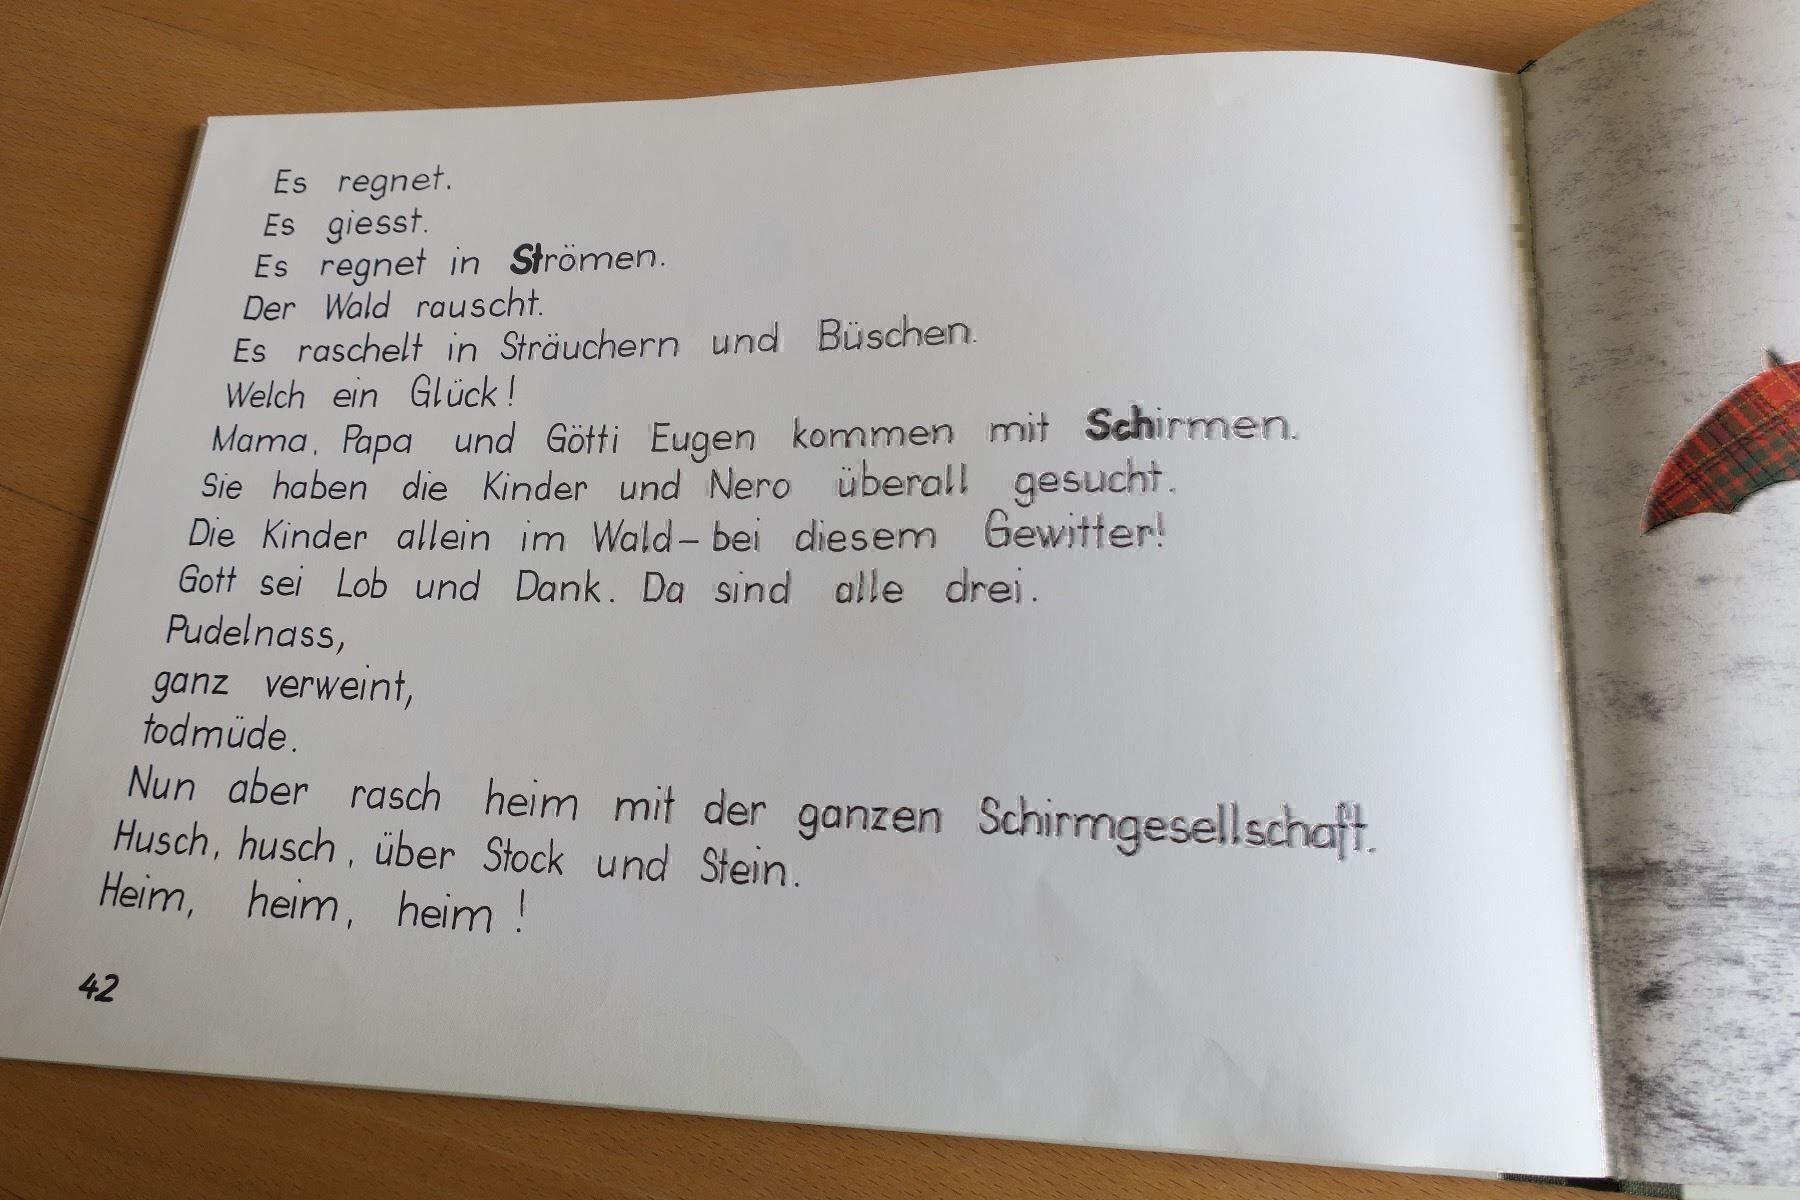 Es regnet.
Es giesst.
Es regnet in Strömen.
Der Wald rauscht.
Es raschelt in Sträuchern und Büschen.
Welch ein Glück!
Mama, Papa und Götti Eugen kommen mit Schirmen.
Sie haben die Kinder und Nero überall gesucht.
Die Kinder allein im Wald – bei diesem Gewitter!
Gott sei Lob und Dank. Da sind alle drei.
Pudelnass,
ganz verweint,
todmüde.
Nun aber rasch heim mit der ganzen Schirmgesellschaft.
Husch, husch, über Stock und Stein.
Heim, heim, heim!
42